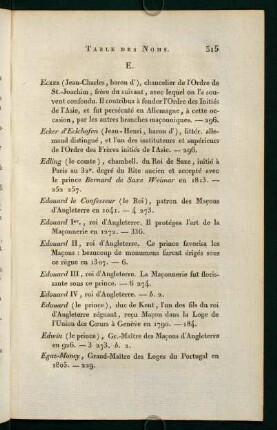 Table des Noms. 315
E.
Ecker (Jean-Charles, baron d'), chancelier de l'Ordre de
St.-Joachim, frère du suivant, avec lequel on l'a sou-
vent confondu. Il contribua à fonder l'Ordre des Initiés
de l'Asie, et fut persécuté en Allemagne, à cette oc-
casion, par les autres branches maçonniques. — 296.
Ecker d'Eckhofen (Jean-Henri, baron d'), littér. alle-
mand distingué, et l'un des instituteurs et supérieurs
de l'Ordre des Frères initiés de l'Asie. — 296.
Edling (le comte), chambell. du Roi de Saxe, initié à
Paris au 32e. degré du Rite ancien et accepté avec
le prince Bernard de Saxe Weimar en 1813. —
252 257.
Edouard le Confesseur (le Roi), patron des Maçons
d'Angleterre en 1041. — 4 273.
Edouard Ier., roi d'Angleterre. Il protéges l'art de la
Maçonnerie en 1272. — 336.
Edouard II, roi d'Angleterre. Ce prince favorisa les
Maçons : beaucoup de monumens furent érigés sous
ce règne en 1307. — 6.
Edouard III, roi d'Angleterre. La Maçonnerie fut floris-
sante sous ce prince. — 6 274.
Edouard IV, roi d'Angleterre. — b. 2.
Edouard (le prince), duc de Kent, l'un des fils du roi
d'Angleterre régnant, reçu Maçon dans la Loge de
l'Union des Cœurs à Genève en 1790. — 184.
Edwin (le prince), Gr.-Maître des Maçons d'Angleterre
en 926. — 3 273. b. 2.
Egaz-Money, Grand-Maître des Loges du Portugal en
1805. — 229.